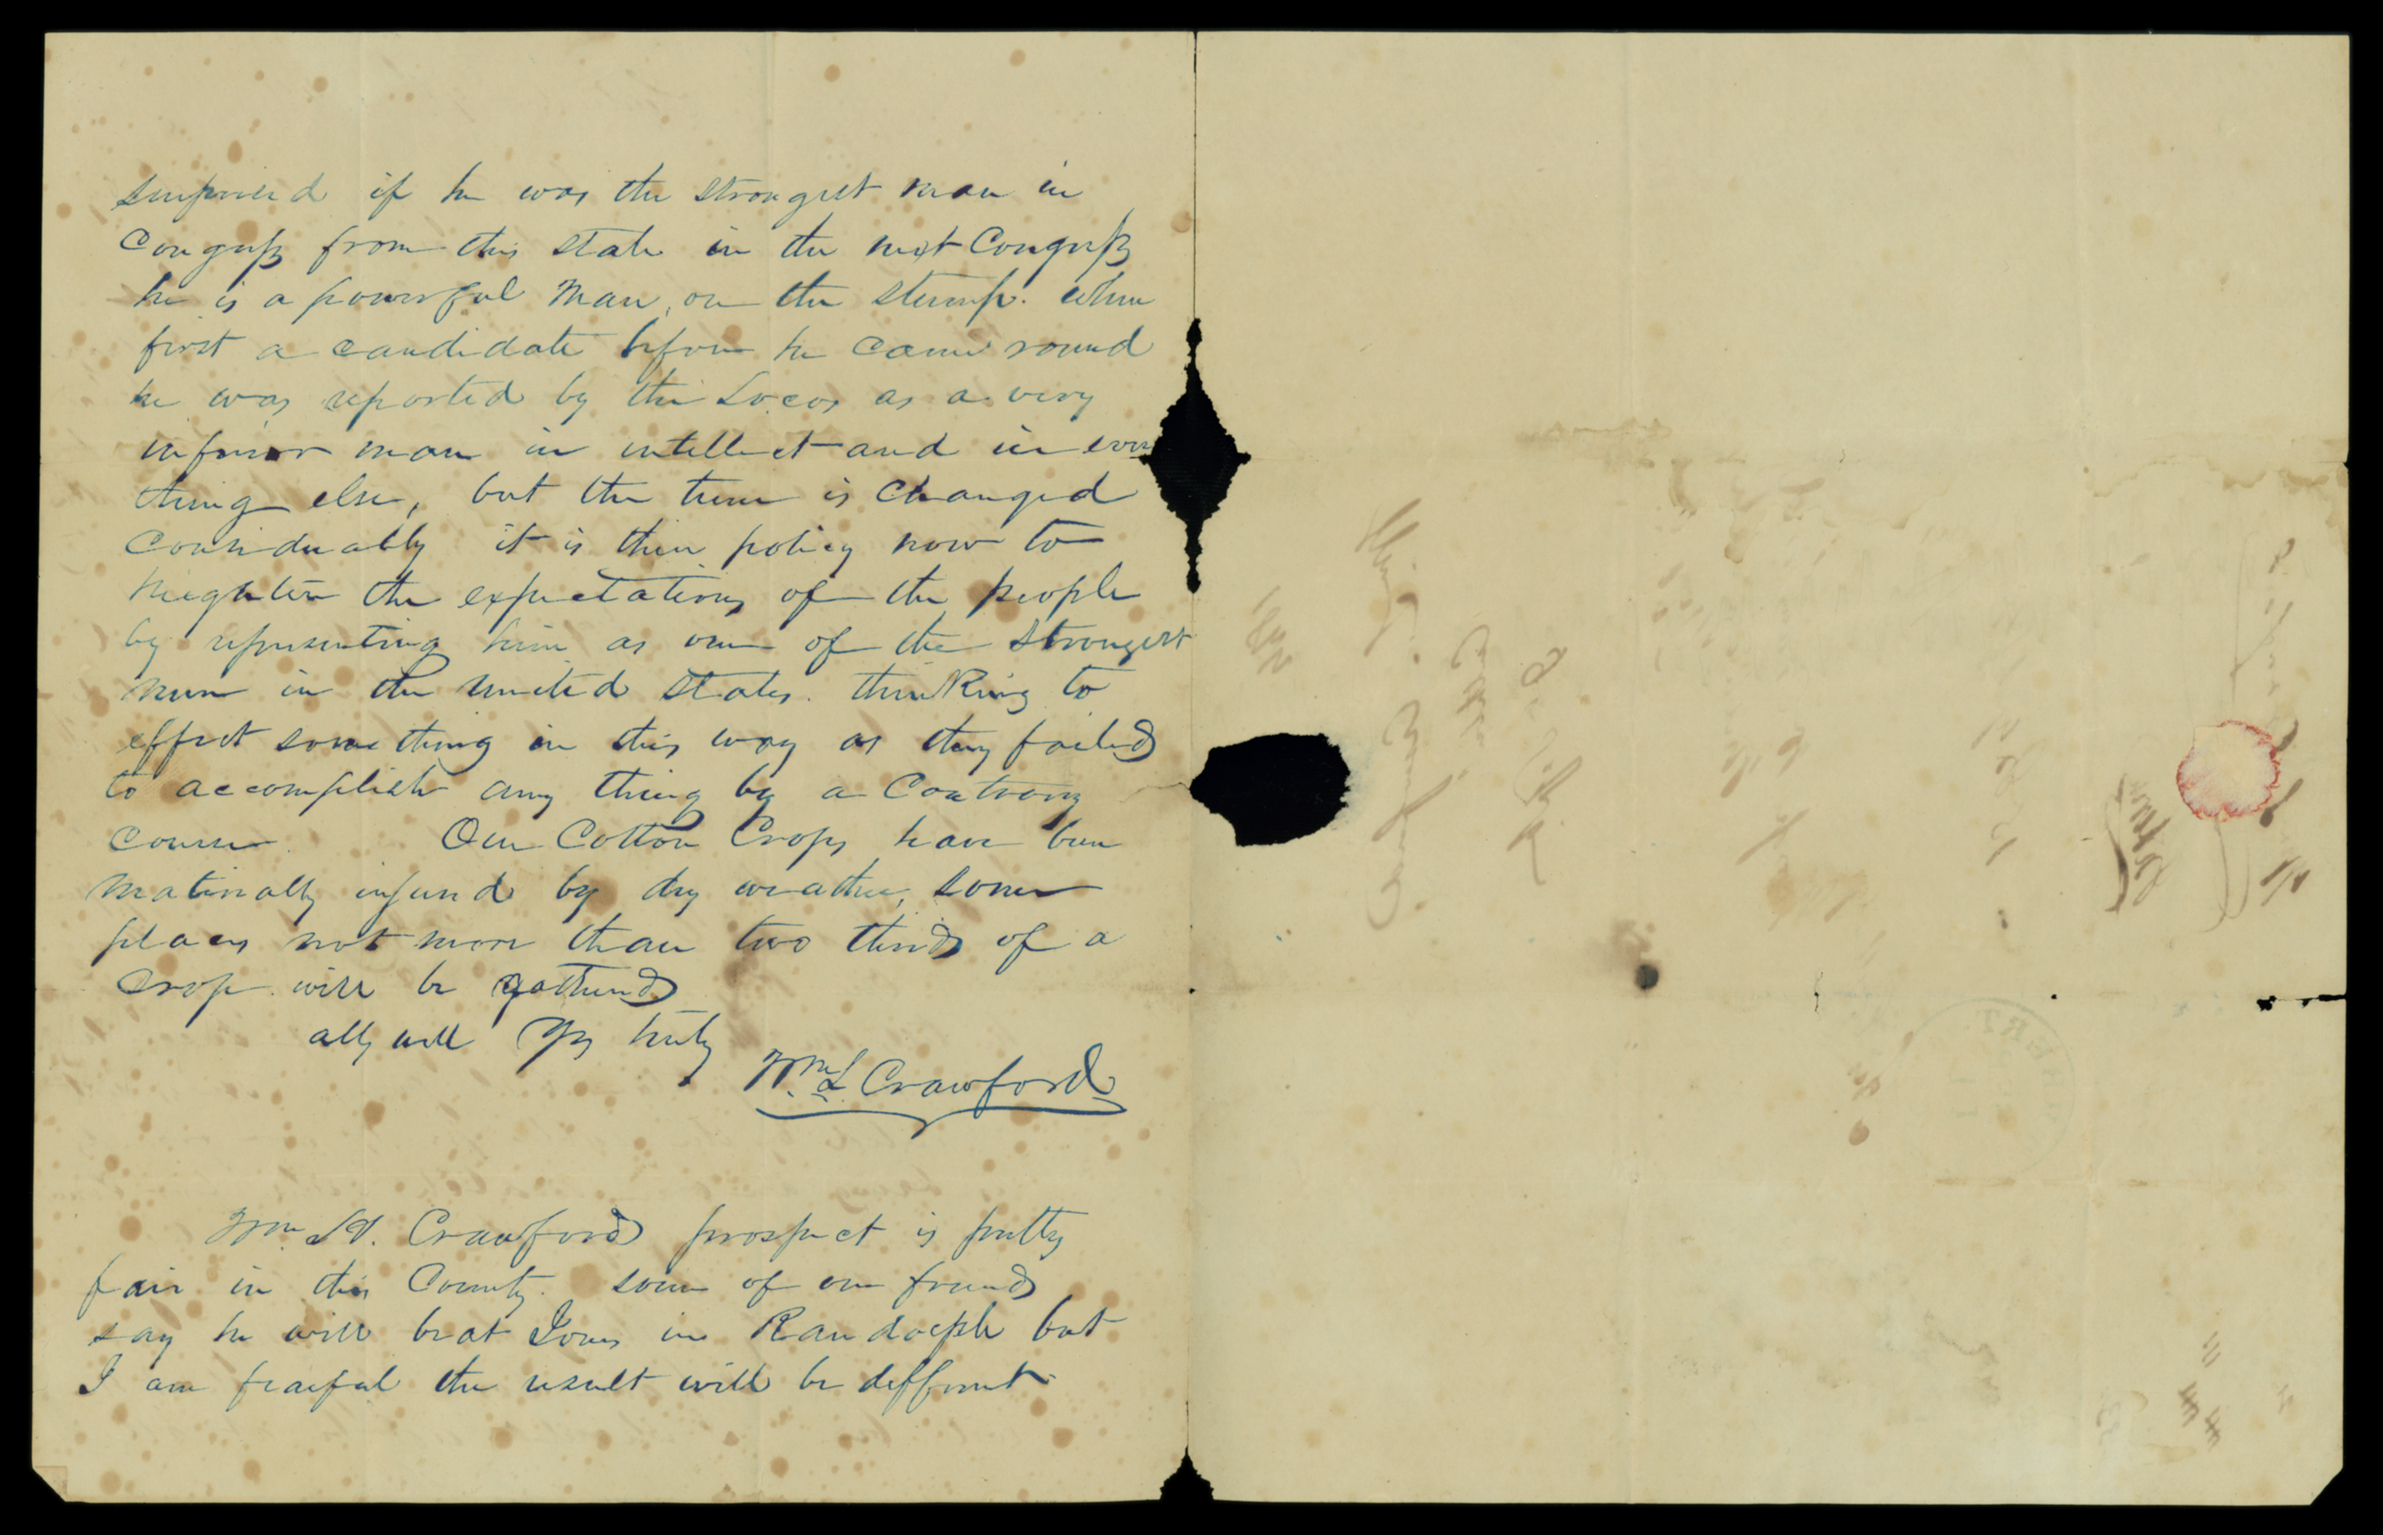 surprised if he was the strongest man in
Congress from this state in the next Congress
he is a powerful man, on the stump. When
first a candidate before he came round
he was reported by the Locos as a very
inferior man in intellect and in every
thing else, but the tune is changed
Considerably it is their policy now to
heighten the expectations of the people
by representing him as one of the strongest
men in the United States. thinking to
effect something in this way as they failed
to accomplish any thing by a Contrary
course. Our Cotton Crops have been
materially injured by dry weather, some
places not more than two thirds of a
Crop will be gathered
all well Yrs truly
Wm. L. Crawford
Wm. H. Crawford prospect is pretty
fair in this County. some of our friends
say he will beat Jones in Randolph but
I am fearful the result will be different